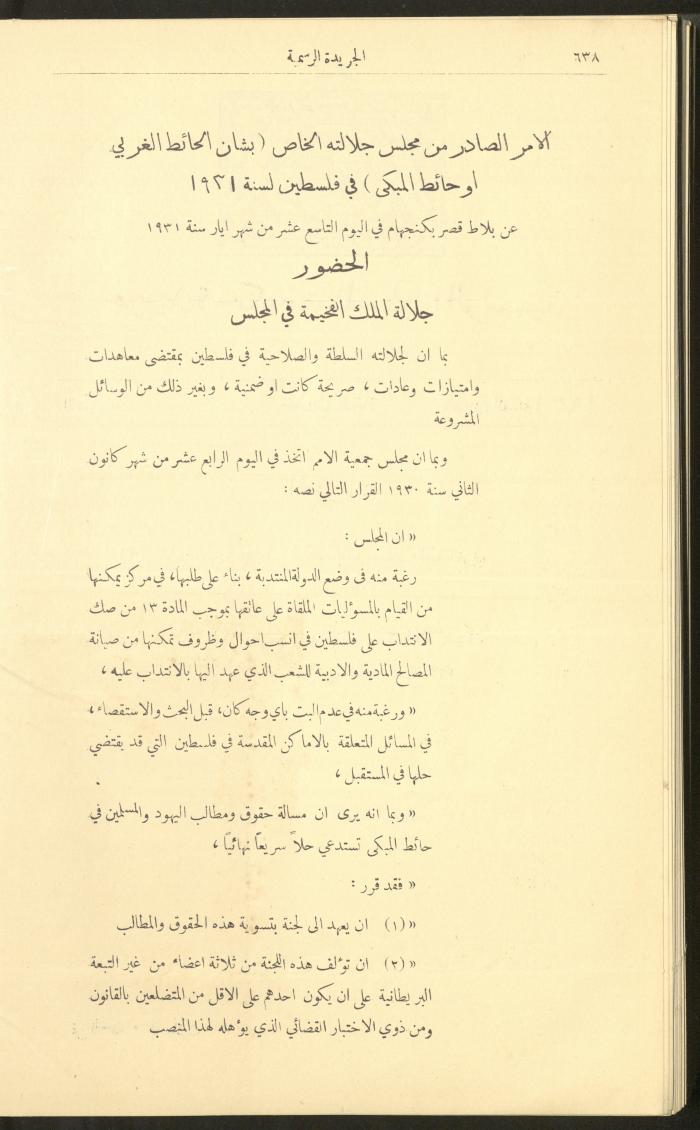 ٦٣٨
الجريدة الرسمية
الامر الصادر من مجلس جلالته الخاص ( بشان الحائط الغربي
او حائط المبكى ) في فلسطين لسنة ١٩٣١
عن بلاط قصر بكنجهام في اليوم التاسع عشر من شهر ايار سنة ١٩٣١
الحضور
جلالة الملك الفخيمة في المجلس
بما ان لجلالته السلطة والصلاحية في فلسطين بمقتضى معاهدات
وامتيازات وعادات ، صريحة كانت او ضمنية ، وبغير ذلك من الوسائل
المشروعة
وبما ان مجلس جمعية الامم اتخذ في اليوم الرابع عشر من شهر كانون
الثاني سنة ١٩٣٠ القرار التالي نصه :
« ان المجلس :
رغبة منه في وضع الدولة المنتدبة ، بناء على طلبها، في مركز يمكنها
من القيام بالمسؤليات الملقاة على عاتقها بموجب المادة ١٣ من صك
الانتداب على فلسطين في انسب احوال وظروف تمكنها من صيانة
المصالح المادية والادبية للشعب الذي عهد اليها بالانتداب عليه ،
« ورغبة منه في عدم البت باي وجه كان، قبل البحث والاستقصاء ،
في المسائل المتعلقة بالاماكن المقدسة في فلسطين التي قد يقتضي
حلها في المستقبل ،
« وبما انه يرى ان مسالة حقوق ومطالب اليهود والمسلمين في
حائط المبكى تستدعي حلاً سريعاً نهائياً ،
« فقد قرر :
« (١) ان يعهد الى لجنة بتسوية هذه الحقوق والمطالب
« (٢) ان تؤلف هذه اللجنة من ثلاثة اعضاء من غير التبعة
البريطانية على ان يكون احدهم على الاقل من المتضلعين بالقانون
ومن ذوي الاختبار القضائي الذي يؤهله لهذا المنصب